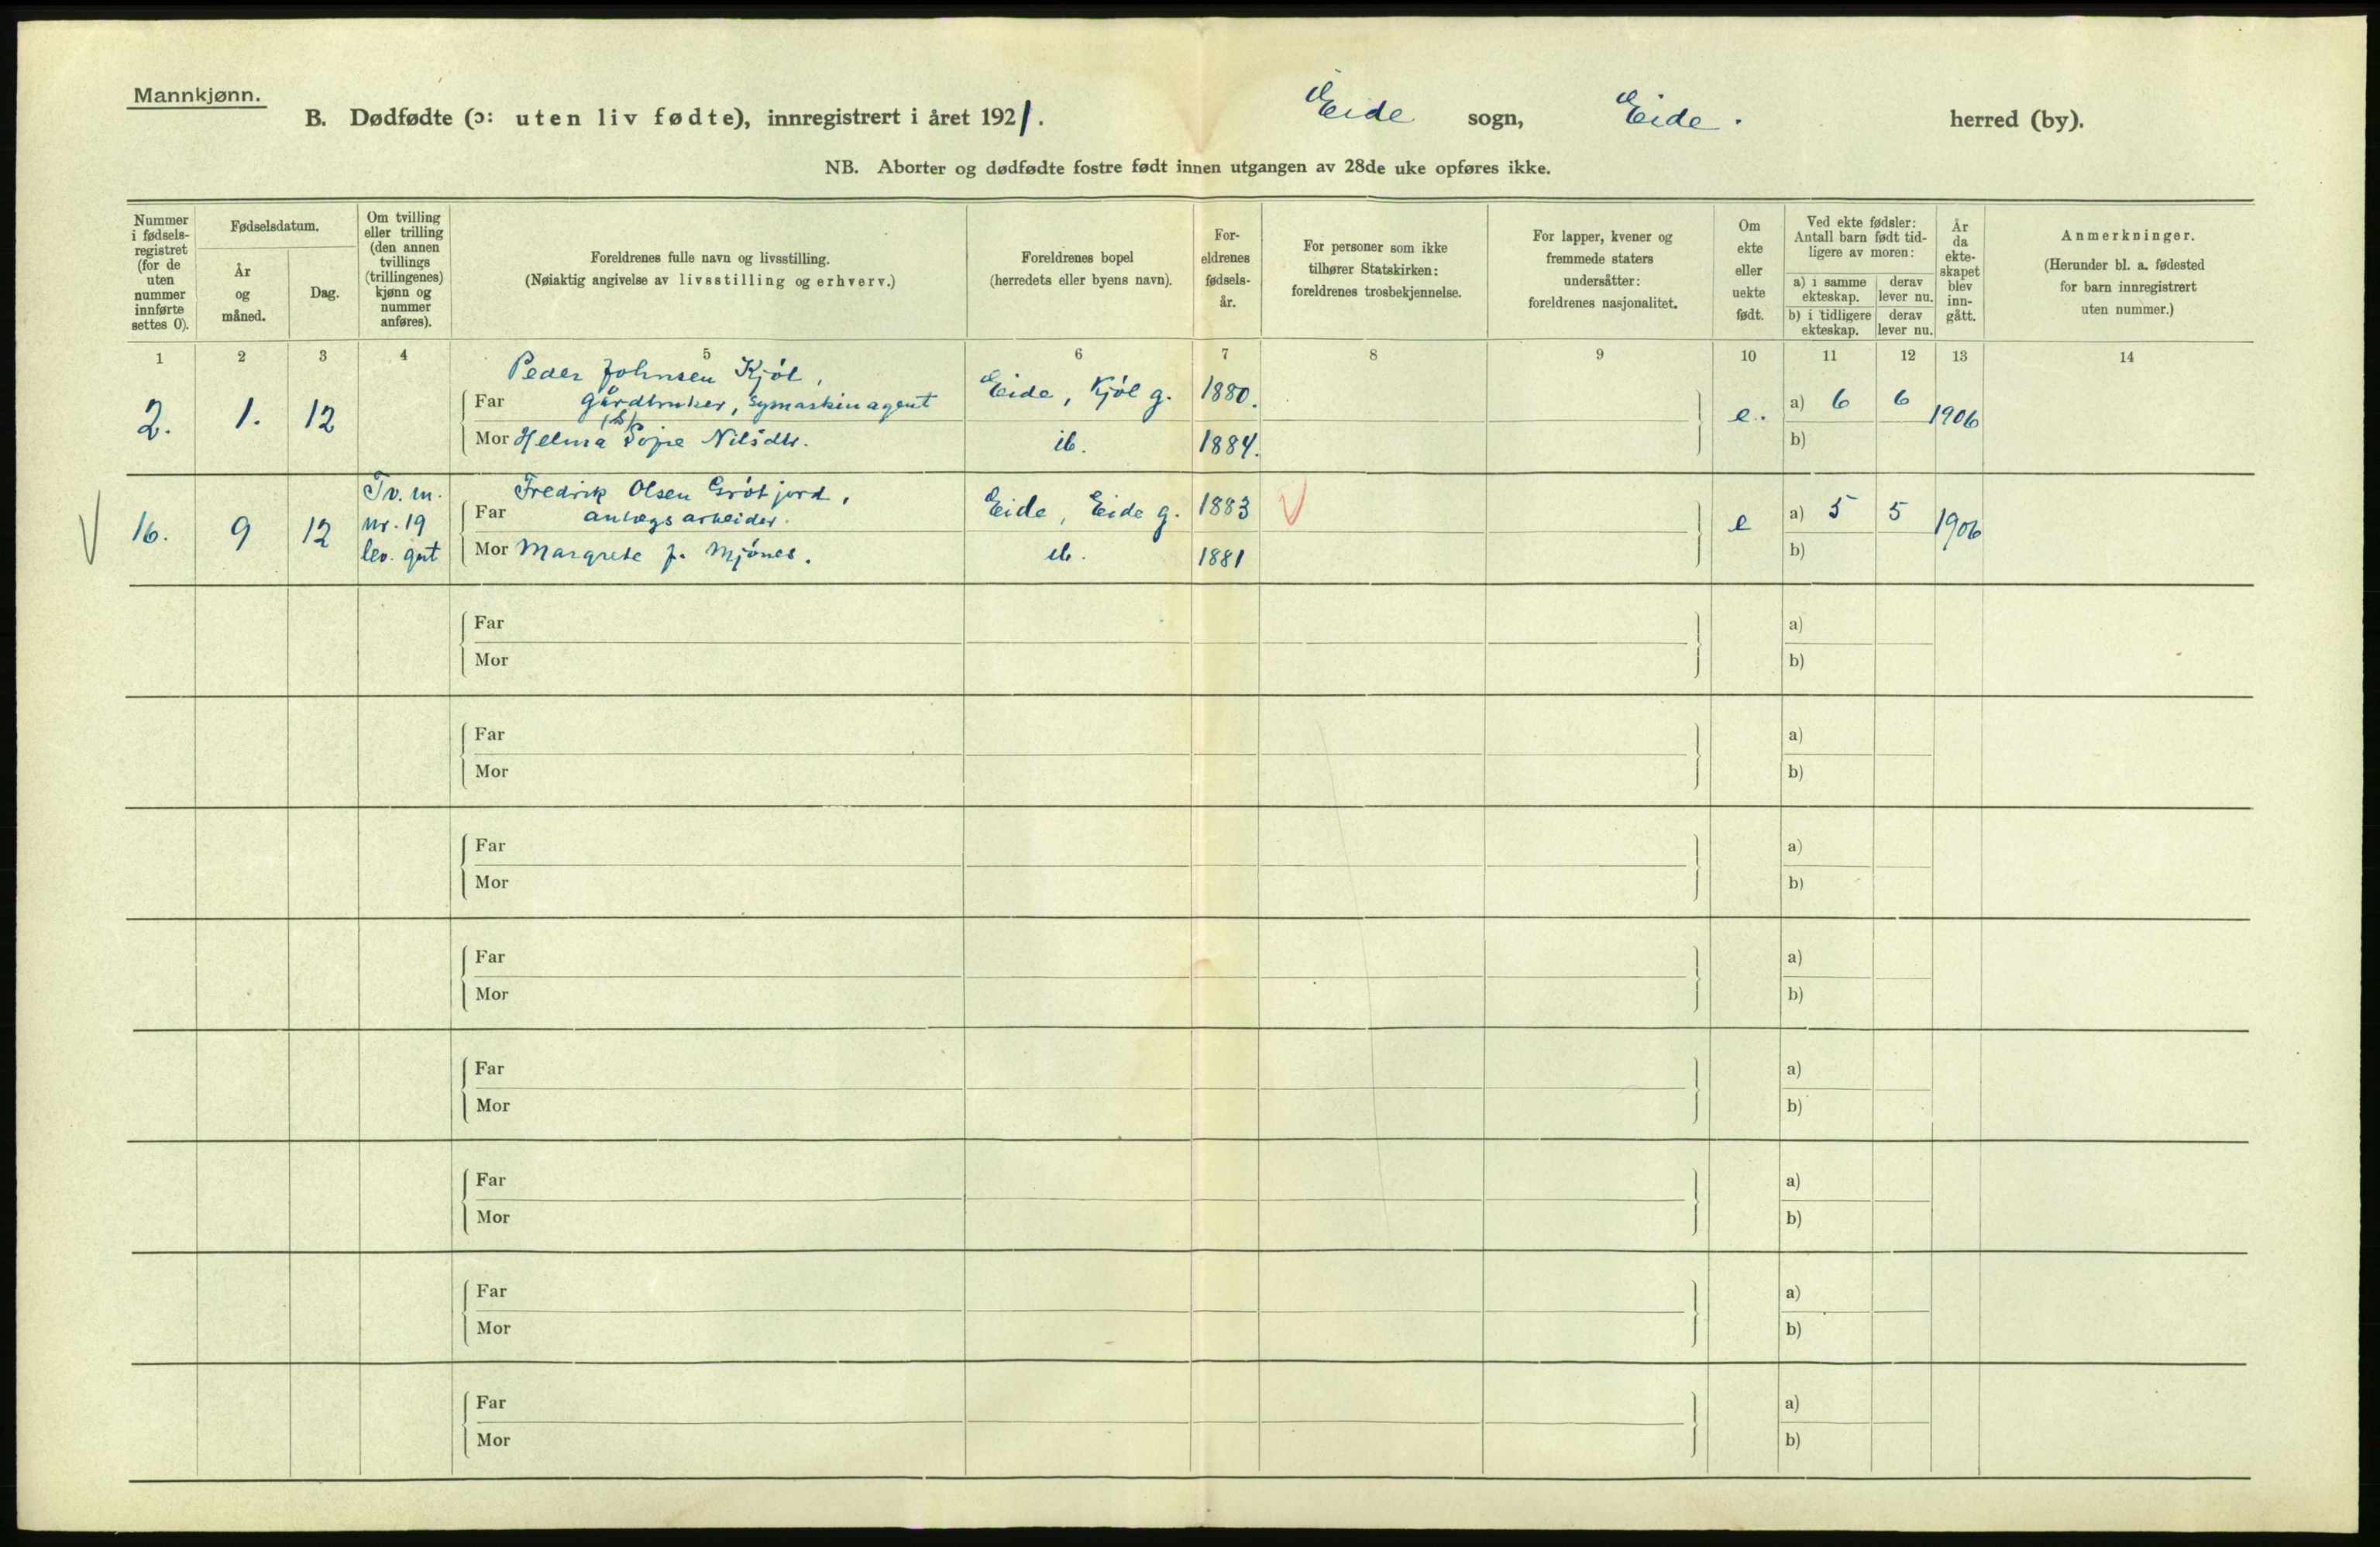 Mannkjønn.
B. Dødfødte (ɔ: uten liv fødte), innregistrert i året 1921. Eide sogn, Eide. herred (by).
NB. Aborter og dødfødte fostre født innen utgangen av 28de uke opføres ikke.
Nummer
i fødsels-
registret
(for de
uten
nummer
innførte
settes 0).
Fødselsdatum.
År
og
måned.
Dag.
Om tvilling
eller trilling
(den annen
tvillings
(trillingenes)
kjønn og
nummer
anføres).
Foreldrenes fulle navn og livsstilling.
(Nøiaktig angivelse av livsstilling og erhverv.)
Foreldrenes bopel
(herredets eller byens navn).
For-
eldrenes
fødsels-
år.
For personer som ikke
tilhører Statskirken:
foreldrenes trosbekjennelse.
For lapper, kvener og
fremmede staters
undersåtter:
foreldrenes nasjonalitet.
Om
ekte
eller
uekte
født.
Ved ekte fødsler:
Antall barn født tid-
ligere av moren:
a) i samme
ekteskap.
derav
lever nu.
b) i tidligere
ekteskap.
derav
lever nu.
År
da
ekte-
skapet
blev
inn-
gått.
Anmerkninger.
(Herunder bl. a. fødested
for barn innregistrert
uten nummer.)
1 2 3 4 5 6 7 8 9 10 11 12 13 14
Peder Johnsen Kjøl,
2. 1. 12 Far gårdbruker, symaskinagent Eide, Kjøl g. 1880. e. a) 6 6 1906
Mor Helma Nilsdtr. ib. 1884. b)
Tv. m. Fredrik Olsen
16. 9 12 nr. 19 Far anlægsarbeider. Eide, Eide g. 1883 e a) 5 5 1906
lev. gut Mor Margrete f. Mjønes. ib. 1881 b)
Far a)
Mor b)
Far a)
Mor b)
Far a)
Mor b)
Far a)
Mor b)
Far a)
Mor b)
Far a)
Mor b)
Far a)
Mor b)
Far a)
Mor b)